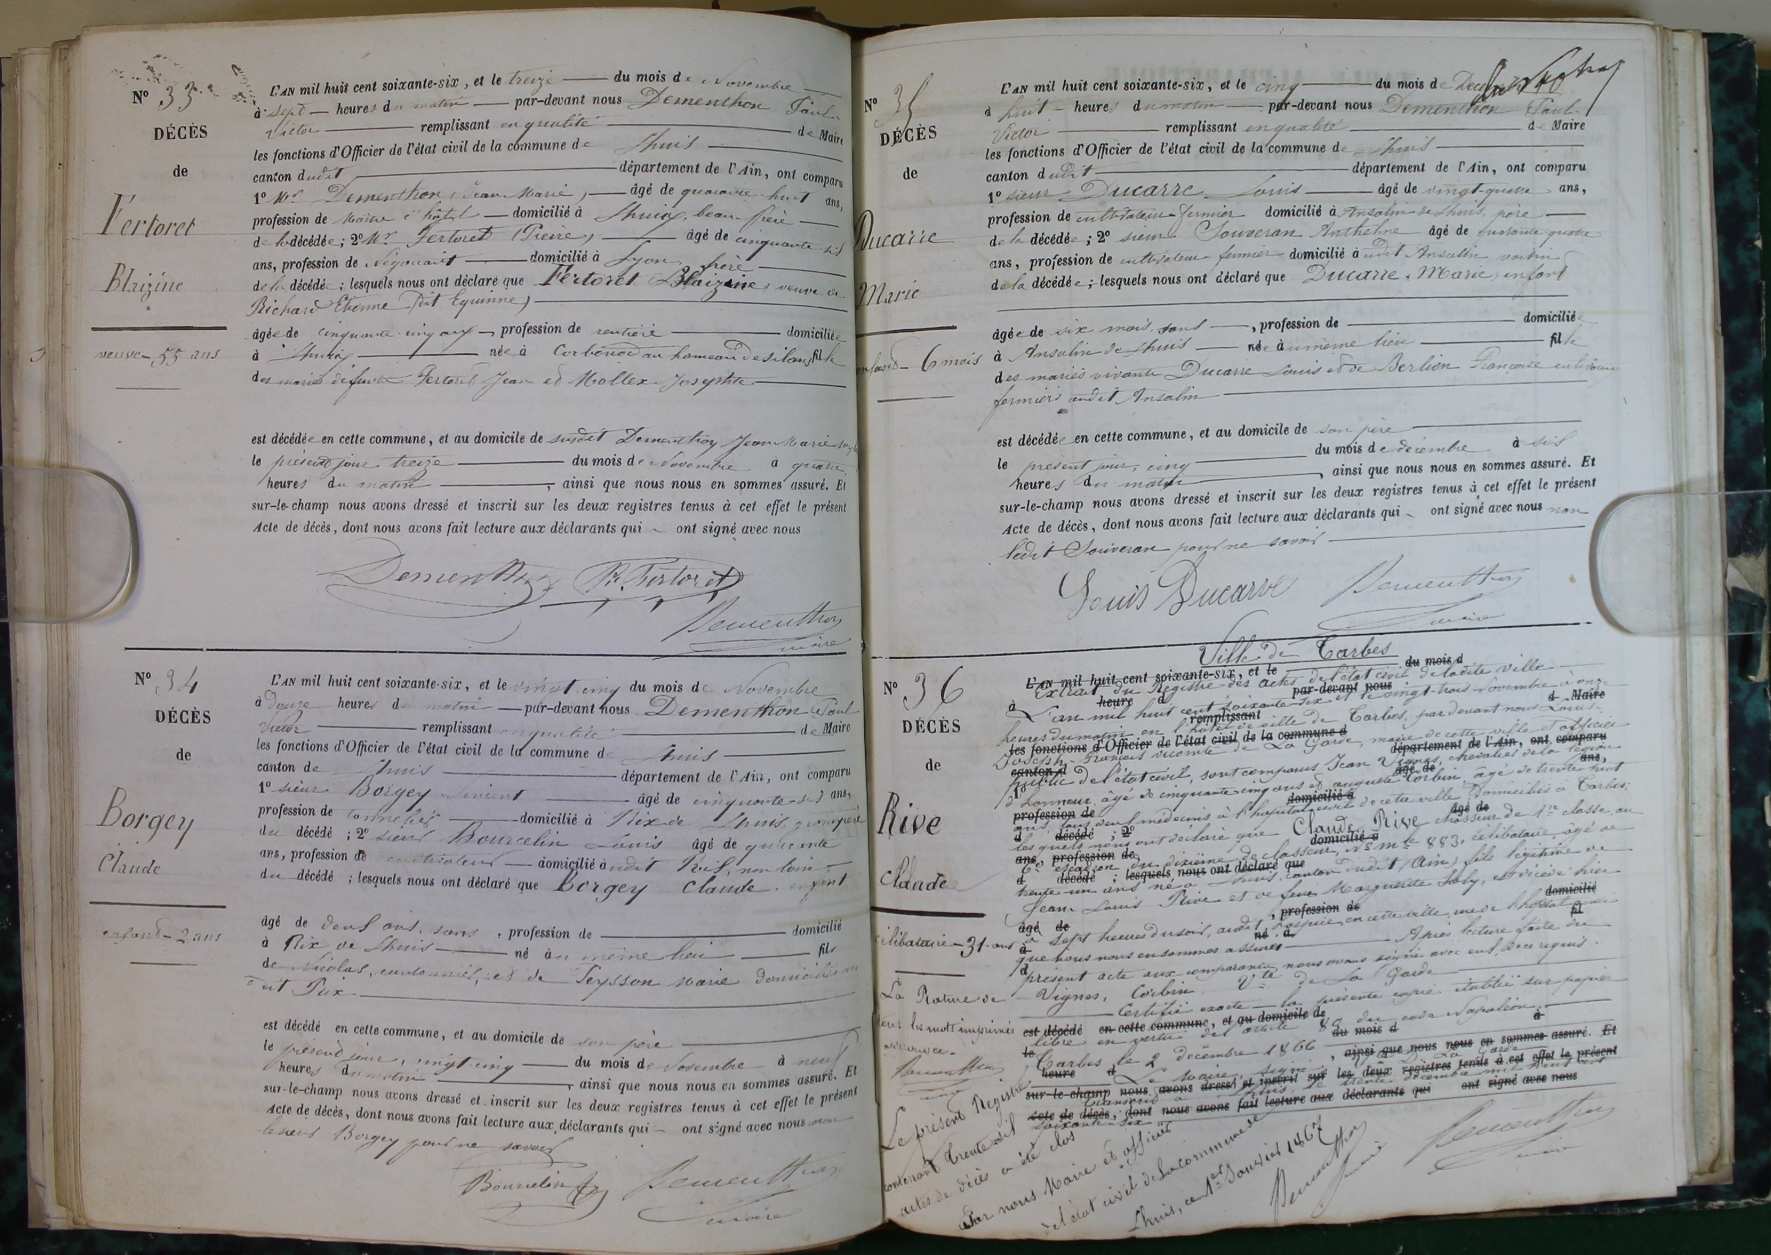 Nº 33
DÉCÈS
de
Fertoret
Blaizine
veuve - 55 ans
L'AN mil huit cent soixante-six, et le treize du mois de Novembre
à sept heures du matin par-devant nous Dementhon Paul
Victor remplissant en qualité de Maire
les fonctions d'Officier de l'état civil de la commune de Lhuis
canton dudit département de l'Ain, ont comparu
1º Mr Dementhon (Jean Marie) âgé de quarante-huit ans,
profession de Maître d'hôtel domicilié à Lhuis, beau-frère
de la décédée ; 2º Mr Fertoret (Pierre) âgé de cinquante six
ans, profession de Négociant domicilié à Lyon, frère
de la décédée ; lesquels nous ont déclaré que Fertoret Blaizine, veuve de
Richard Etienne
âgée de cinquante cinq ans, profession de rentière domiciliée
à Lhuis née à Corbonod au hameau de Silan, fille
des mariés défunts Fertoret Jean et Mollex Josephte
est décédée en cette commune, et au domicile de susdit Dementhon Jean Marie
le présent jour treize du mois de Novembre à quatre
heures du matin, ainsi que nous nous en sommes assuré. Et
sur-le-champ nous avons dressé et inscrit sur les deux registres tenus à cet effet le présent
Acte de décès, dont nous avons fait lecture aux déclarants qui ont signé avec nous
Dementhon Pre Fertoret
Dementhon
maire
Nº 34
DÉCÈS
de
Borgey
Claude
enfant - 2 ans
L'AN mil huit cent soixante-six, et le vingt cinq du mois de Novembre
à douze heures du matin par-devant nous Dementhon Paul
Victor remplissant en qualité de Maire
les fonctions d'Officier de l'état civil de la commune de Lhuis
canton de Lhuis département de l'Ain, ont comparu
1º sieur Borgey âgé de cinquante-six ans,
profession de domicilié à Rix de Lhuis,
du décédé ; 2º sieur Bourcelin Louis âgé de quarante
ans, profession de cultivateur domicilié à udit Rix, non loin
du décédé ; lesquels nous ont déclaré que Borgey Claude, enfant
âgé de deux ans, sans, profession de domicilié
à Rix de Lhuis né au même lieu fils
de Nicolas, cantonnier, et de Peysson Marie domiciliés au
dit Rix
est décédé en cette commune, et au domicile de son père
le présent jour, vingt-cinq du mois de Novembre à neuf
heures du matin, ainsi que nous nous en sommes assuré. Et
sur-le-champ nous avons dressé et inscrit sur les deux registres tenus à cet effet le présent
Acte de décès, dont nous avons fait lecture aux déclarants qui ont signé avec nous non
le sieur Borgey pour ne savoir
Bourcelin Dementhon
maire
Nº 35
DÉCÈS
de
Ducarre
Marie
enfant - 6 mois
L'AN mil huit cent soixante-six, et le cinq du mois de Décembre
à huit heures du matin par-devant nous Dementhon Paul
Victor remplissant en qualité de Maire
les fonctions d'Officier de l'état civil de la commune de Lhuis
canton dudit département de l'Ain, ont comparu
1º sieur Ducarre Louis âgé de vingt-quatre ans,
profession de cultivateur fermier domicilié à Ansolin de Lhuis, père
de la décédée ; 2º sieur Souveran Anthelme âgé de soixante quatre
ans, profession de cultivateur fermier domicilié à udit Ansolin voisin
de la décédée ; lesquels nous ont déclaré que Ducarre Marie, enfant
âgée de six mois, sans, profession de domiciliée
à Ansolin de Lhuis née au même lieu fille
des mariés vivants Ducarre Louis et de Berlion Françoise cultivateurs
fermiers audit Ansolin
est décédée en cette commune, et au domicile de son père
le présent jour, cinq du mois de décembre à six
heures du matin, ainsi que nous nous en sommes assuré. Et
sur-le-champ nous avons dressé et inscrit sur les deux registres tenus à cet effet le présent
Acte de décès, dont nous avons fait lecture aux déclarants qui ont signé avec nous non
ledit Souveran pour ne savoir
Louis Ducarre Dementhon
maire
Nº 36
DÉCÈS
de
Rive
Claude
célibataire - 31 ans
La Rature de
tous les mots imprimés
approuvée.
Dementhon
Ville de Tarbes
Extrait du Registre des actes de l'état civil de ladite ville
L'an mil huit cent soixante-six et le vingt trois Novembre à onze
heures du matin en l'hôtel de ville de Tarbes, par devant nous Louis
Joseph François vicomte de La Garde, maire de cette ville et officier
public de l'état civil, sont comparus Jean Vignes, chevalier de la légion
d'honneur, âgé de cinquante cinq ans et Auguste Corbin, âgé de trente huit
ans, tous deux médecins à l'hôpital civil de cette ville domiciliés à Tarbes,
lesquels nous ont déclaré que Claude Rive chasseur de 1re classe au
6e escadron du dixième de chasseurs, No mle 883, célibataire, âgé de
trente un ans né à Lhuis, canton dudit (Ain), fils légitime de
Jean Louis Rive et de feue Marguerite Joly, est décédé hier
à sept heures du soir, audit hospice, en cette ville, rue de l'hôpital
que nous nous en sommes assurés. Après lecture faite du
présent acte aux comparants, nous avons signé avec eux
Vignes, Corbin Vte de La Garde
Certifié exacte la présente copie établie sur papier
libre en vertu de l'article 80 du code Napoléon.
Tarbes le 2 décembre 1866
Le Maire, signé La Garde
Transcrit à Lhuis le trente décembre mil huit cent
soixante-six
Dementhon
maire
Le présent Registre
contenant trente six
actes de décès a été clos
Par nous Maire et officier
de l'état civil de la commune de
Lhuis, ce 1er Janvier 1867
Dementhon
maire